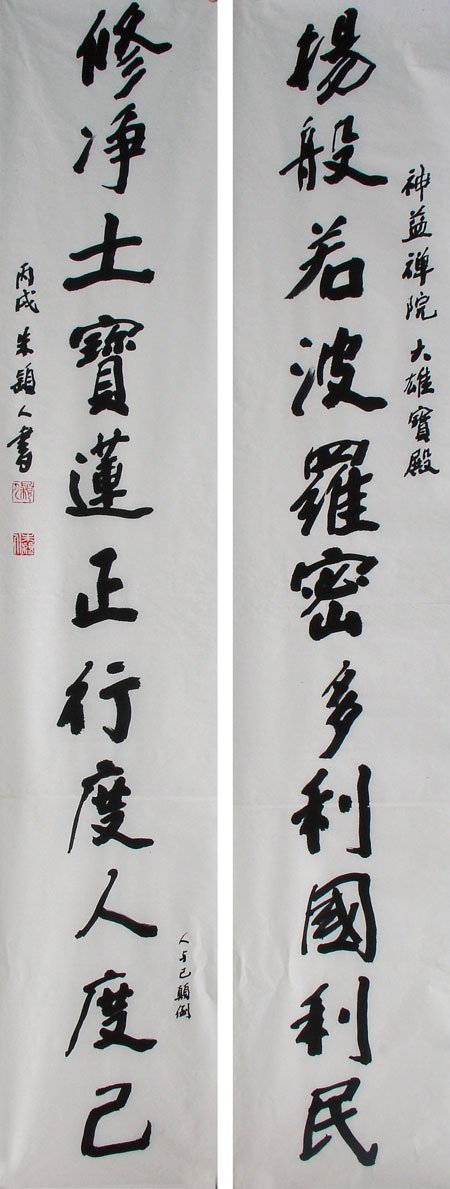 揚般若波羅密多利國利民
神益禅院大雄寶殿
修净土寶蓮正行度人度己
人与己顛倒
丙戌朱穎人書